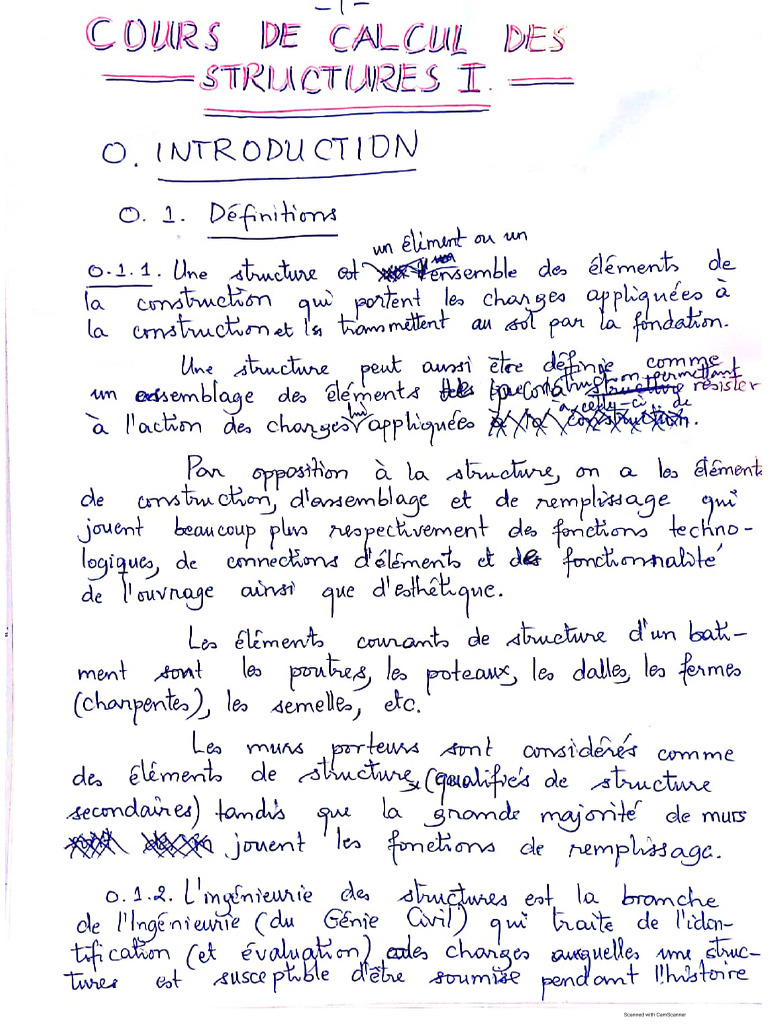 -1-
COURS DE CALCUL DES
STRUCTURES I.
0. INTRODUCTION
0. 1. Définitions
un élément ou un
0.1.1. Une structure est ensemble des éléments de
la construction qui portent les charges appliquées à
la construction et les transmettent au sol par la fondation.
Une structure peut aussi être définie comme
un assemblage des éléments de construction permettant résister
à l'action des charges lui appliquées à celle-ci de
Par opposition à la structure, on a les élément
de construction, d'assemblage et de remplissage qui
jouent beaucoup plus respectivement des fonctions techno-
logiques, de connections d'éléments et de fonctionnalité
de l'ouvrage ainsi que d'esthétique.
Les éléments courants de structure d'un bati-
ment sont les poutres, les poteaux, les dalles, les fermes
(charpentes), les semelles, etc.
Les murs porteurs sont considérés comme
des éléments de structure (qualifiés de structure
secondaires) tandis que la grande majorité de murs
jouent les fonctions de remplissage.
0.1.2. L'ingénieurie des structures est la branche
de l'Ingénieurie (du Génie Civil) qui traite de l'iden-
tification (et évaluation) des charges auquelles une struc-
tures est susceptible d'être soumise pendant l'histoire
Scanned with CamScanner